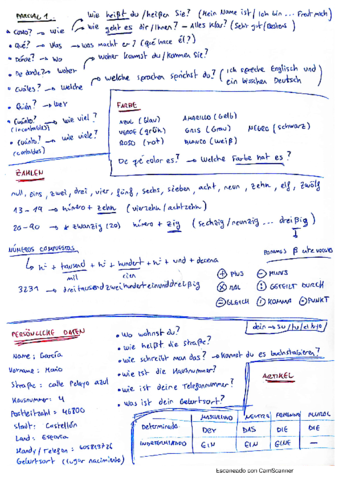 PARCIAL 1
wie heißt du /heißen Sie? (Mein Name ist / Ich bin ... Freut mich)
• Cómo? → wie
wie geht es dir/Ihnen? → Alles klar? (Sehr gut/
• Qué? → Was → was macht er? (qué hace él?)
• Dónde? → Wo
• De dónde → woher
woher kommst du/kommen Sie?
• Cuáles? → welche
welche sprachen sprichst du? (Ich spreche Englisch und ein bisschen Deutsch)
• Quién? → wer
• Cuánto? → wie viel?
(incontables)
• Cuántos? → wie viele?
(contables)
FARBE
AZUL (blau)
AMARILLO (gelb)
VERDE (grün)
GRIS (grau)
NEGRO (schwarz)
ROJO (rot)
BLANCO (weiß)
De qué color es? → Welche Farbe hat es?
ZAHLEN
null, eins, zwei, drei, vier, fünf, sechs, sieben, acht, neun, zehn, elf, zwölf
13 - 19 → número + zehn (vierzehn /achtzehn)
20-90 → * zwanzig (20) número + zig (sechzig /neunzig ... dreißig)
NÚMEROS COMPUESTOS
→ nº + tausend + nº + hundert + nº + und + decena
mil
cien
3231 → dreitausendzweihunderteinunddreißig
ponemos β entre vocales
+ PLUS
- MINUS
x MAL
: GETEILT DURCH
= GLEICH
, KOMMA
• PUNKT
PERSÖNLICHE DATEN
dein → su/tu/el tuyo
Name: García
Vorname: Mario
Straße: calle Pelayo azul
Hausnummer: 4
Postleitzahl: 46800
Stadt: Castellón
Land: España
Handy/Telefon:
Geburtsort (lugar nacimiento)
• Wo wohnst du?
• wie heißt die Straße?
• wie schreibt man das? → kannst du es buchstabieren?
• wie ist die Hausnummer?
• wie ist deine Telefonnummer?
• was ist dein Geburtsort?
ARTIKEL
MASKULINO NEUTRO FEMENINO PLURAL
Determinado DER DAS DIE DIE
Indeterminado EIN EIN EINE —
Escaneado con CamScanner